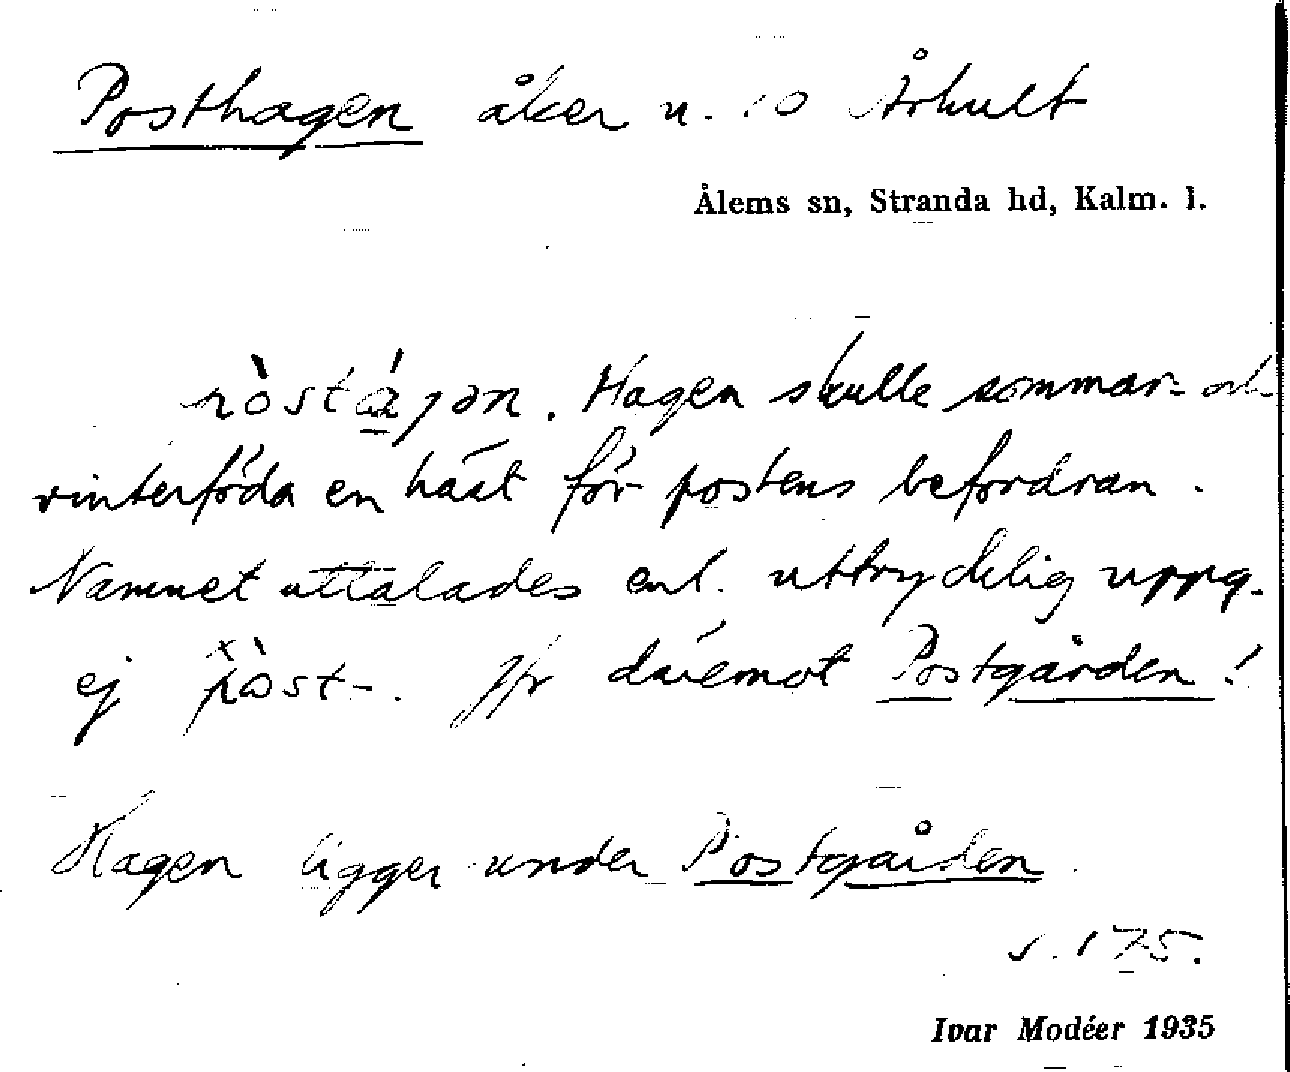 Posthagen åker n. 10 Århult
Ålems sn, Stranda hd, Kalm. l.
Hagen skulle sommar- och
vinterföda en häst för postens befordran.
Namnet uttalades enl. uttrycklig uppg.
ej pòst-. Jfr däremot Postgården!
Hagen ligger under Postgården.
s. 175.
Ivar Modéer 1935